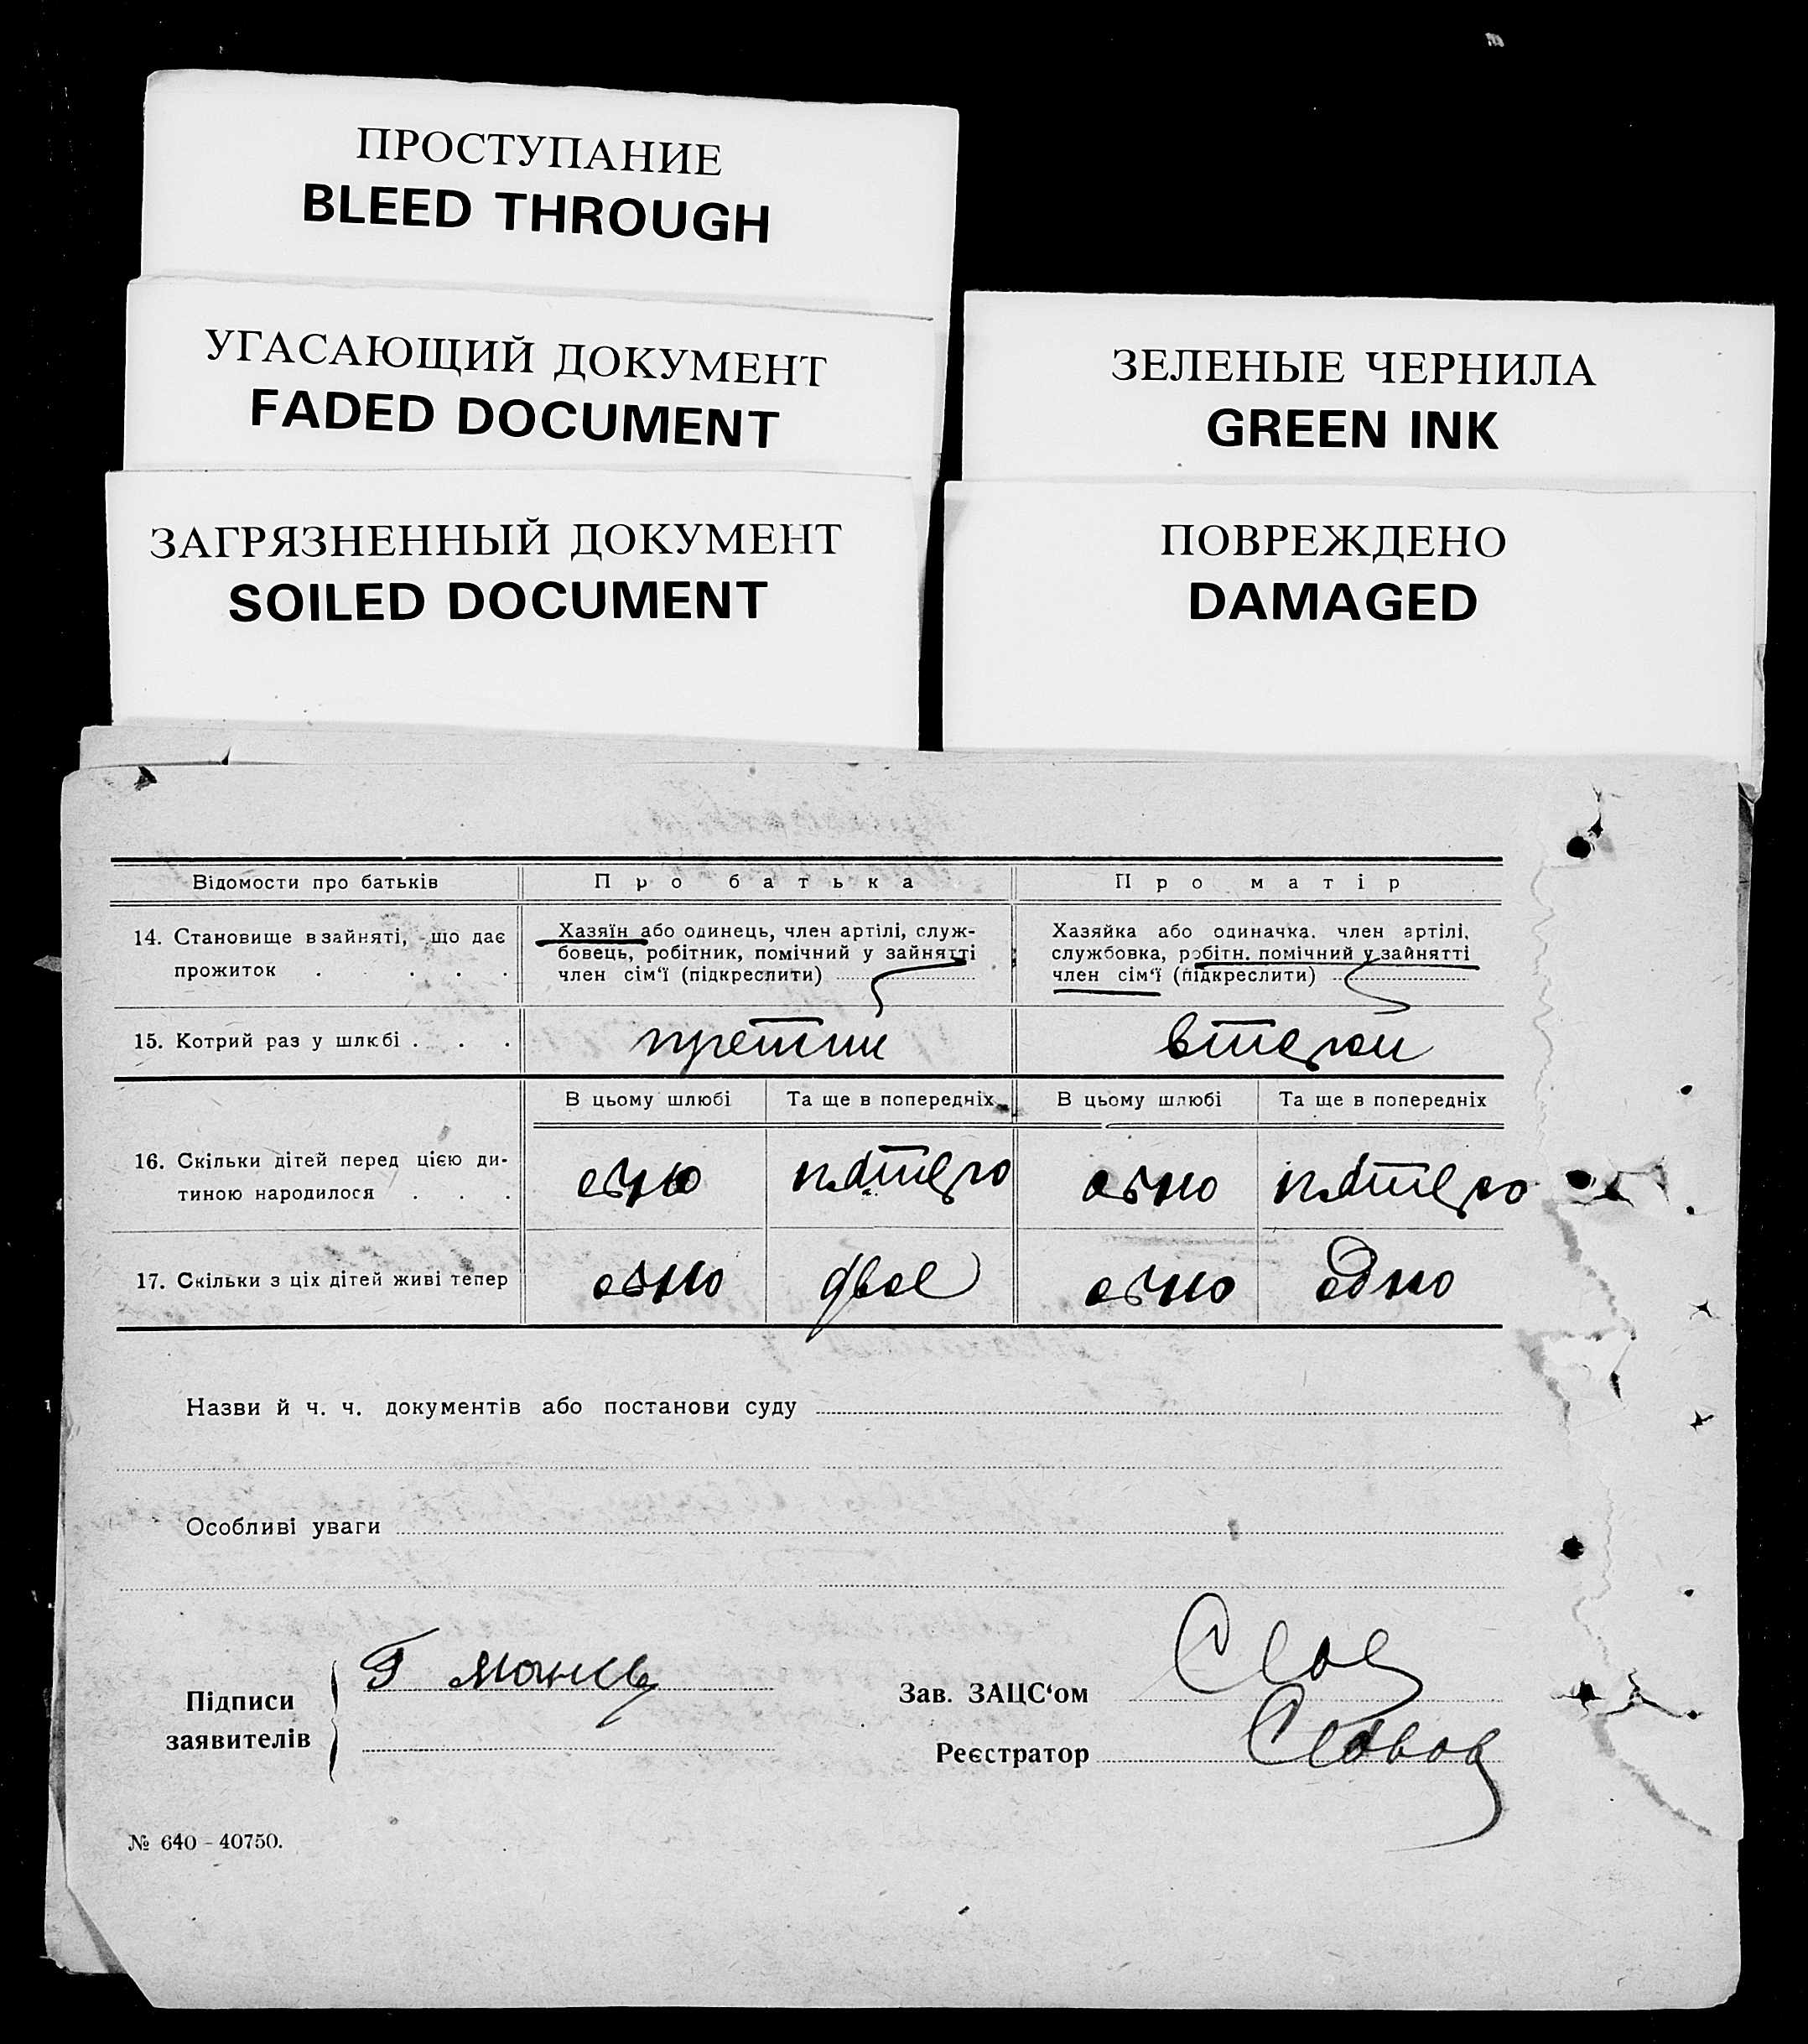 ПРОСТУПАНИЕ
BLEED THROUGH
УГАСАЮЩИЙ ДОКУМЕНТ
FADED DOCUMENT
ЗЕЛЕНЫЕ ЧЕРНИЛА
GREEN INK
ЗАГРЯЗНЕННЫЙ ДОКУМЕНТ
SOILED DOCUMENT
ПОВРЕЖДЕНО
DAMAGED
Відомости про батьків
Про батька
Про матір
14. Становище в зайняті, що дає
прожиток . . . .
Хазяїн або одинець, член артілі, служ-
бовець, робітник, помічний у зайнятті
член сім'ї (підкреслити)
Хазяйка або одиначка, член артілі,
службовка, робітн. помічний у зайнятті
член сім'ї (підкреслити)
15. Котрий раз у шлюбі . . .
третий
второй
В цьому шлюбі
Та ще в попередніх
В цьому шлюбі
Та ще в попередніх
16. Скільки дітей перед цією ди-
тиною народилося . . .
одно
пятеро
одно
пятеро
17. Скільки з ціх дітей живі тепер
одно
двое
одно
одно
Назви й ч. ч. документів або постанови суду
Особливі уваги
Підписи
заявителів
Г
Зав. ЗАЦС'ом
Реєстратор
№ 640 - 40750.